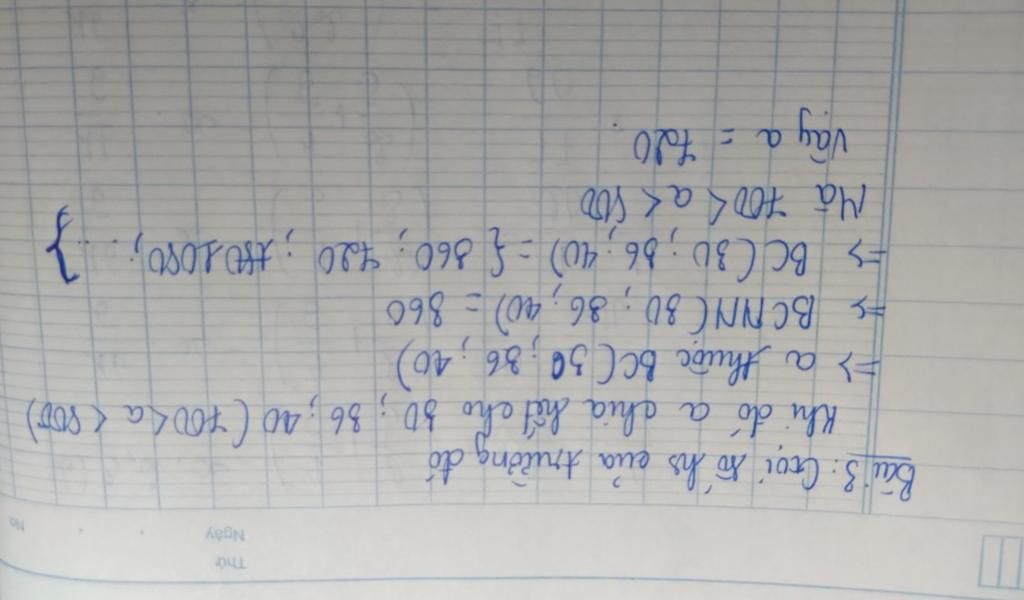 Thứ
Ngày
No
Bài 3: Gọi số hs của trường đó
Khi đó a chia hết cho 30 ; 36 ; 40 (700 < a < 800)
=> a thuộc BC (30 ; 36 ; 40)
=> BCNN (30 ; 36 ; 40) = 360
=> BC (30 ; 36 ; 40) = { 360 ; 720 ; 1080 ; ... }
Mà 700 < a < 800
Vậy a = 720